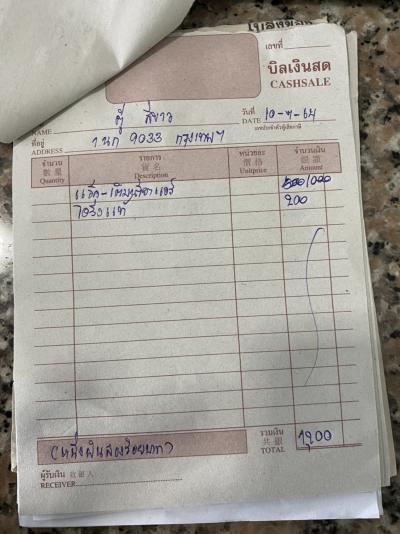 เลขที่
บิลเงินสด
CASHSALE
ตู้ สีขาว
วันที่ 10-7-64
DATE
NAME
เลขประจำตัวผู้เสียภาษี
ที่อยู่ 1นก 9033 กรุงเทพฯ
ADDRESS
จำนวน รายการ หน่วยละ จำนวนเงิน
數量 貨名 價格 銀額
Quantity Description Unitprice Amount
1000
200
รวมเงิน
共銀
TOTAL 1200
(หนึ่งพันสองร้อยบาท)
ผู้รับเงิน 收銀人
RECEIVER